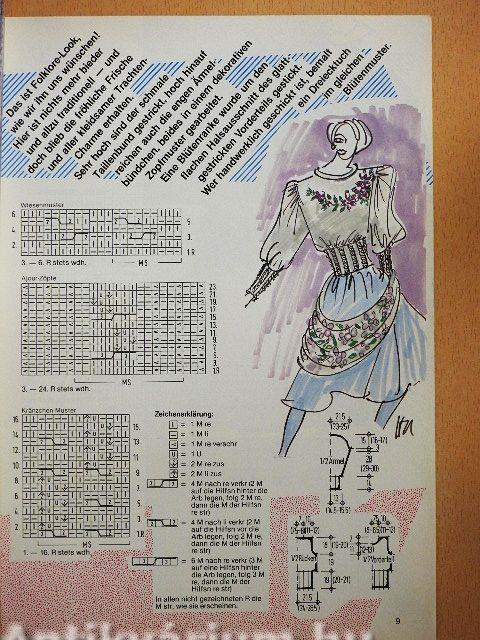 Das ist Folklore-Look,
wie wir ihn uns wünschen!
Hier ist nichts mehr bieder
und allzu traditionell — und
doch blieb die fröhliche Frische
und aller kleidsamer Trachten-
Charme erhalten.
Sehr hoch sind der schmale
Taillenbund gestrickt, hoch hinauf
reichen auch die engen Ärmel-
bündchen, beides in einem dekorativen
Zopfmuster gearbeitet.
Eine Blütenranke wurde um den
flachen Halsausschnitt des glatt-
gestrickten Vorderteils gestickt.
Wer handwerklich geschickt ist, bemalt
ein Dreiecktuch
im gleichen
Blütenmuster.
Wiesenmuster
6.
4.
2.
5.
3.
1.R
3. — 6. R stets wdh.
MS
Ajour-Zöpfe
23.
21.
19.
17.
15.
13.
11.
9.
7.
5.
3.
1.R
MS
3. — 24. R stets wdh.
Kränzchen-Muster
16.
14.
12.
10.
8.
6.
4.
2.
15.
13.
11.
9.
7.
5.
3.
1.R
MS
1. — 16. R stets wdh.
Zeichenerklärung:
= 1 M re
= 1 M li
= 1 M re verschr
= 1 U
= 2 M re zus
= 2 M li zus
= 4 M nach re verkr (2 M
auf die Hilfsn hinter die
Arb legen, folg 2 M re,
dann die M der Hilfsn
re str)
= 4 M nach li verkr (2 M
auf die Hilfsn vor die
Arb legen, folg 2 M re,
dann die M der Hilfsn
re str)
= 6 M nach re verkr (3 M
auf eine Hilfsn hinter
die Arb legen, folg 3 M
re, dann die M der
Hilfsn re str)
In allen nicht gezeichneten R die
M str, wie sie erscheinen.
21.5
(23-25)
15 (16-17)
3
28
(29-30)
14
1/2 Ärmel
13
1/2 Rücken
19 (19-20)
19
19 (20-21)
1/2 Vorderteil
21.5
9